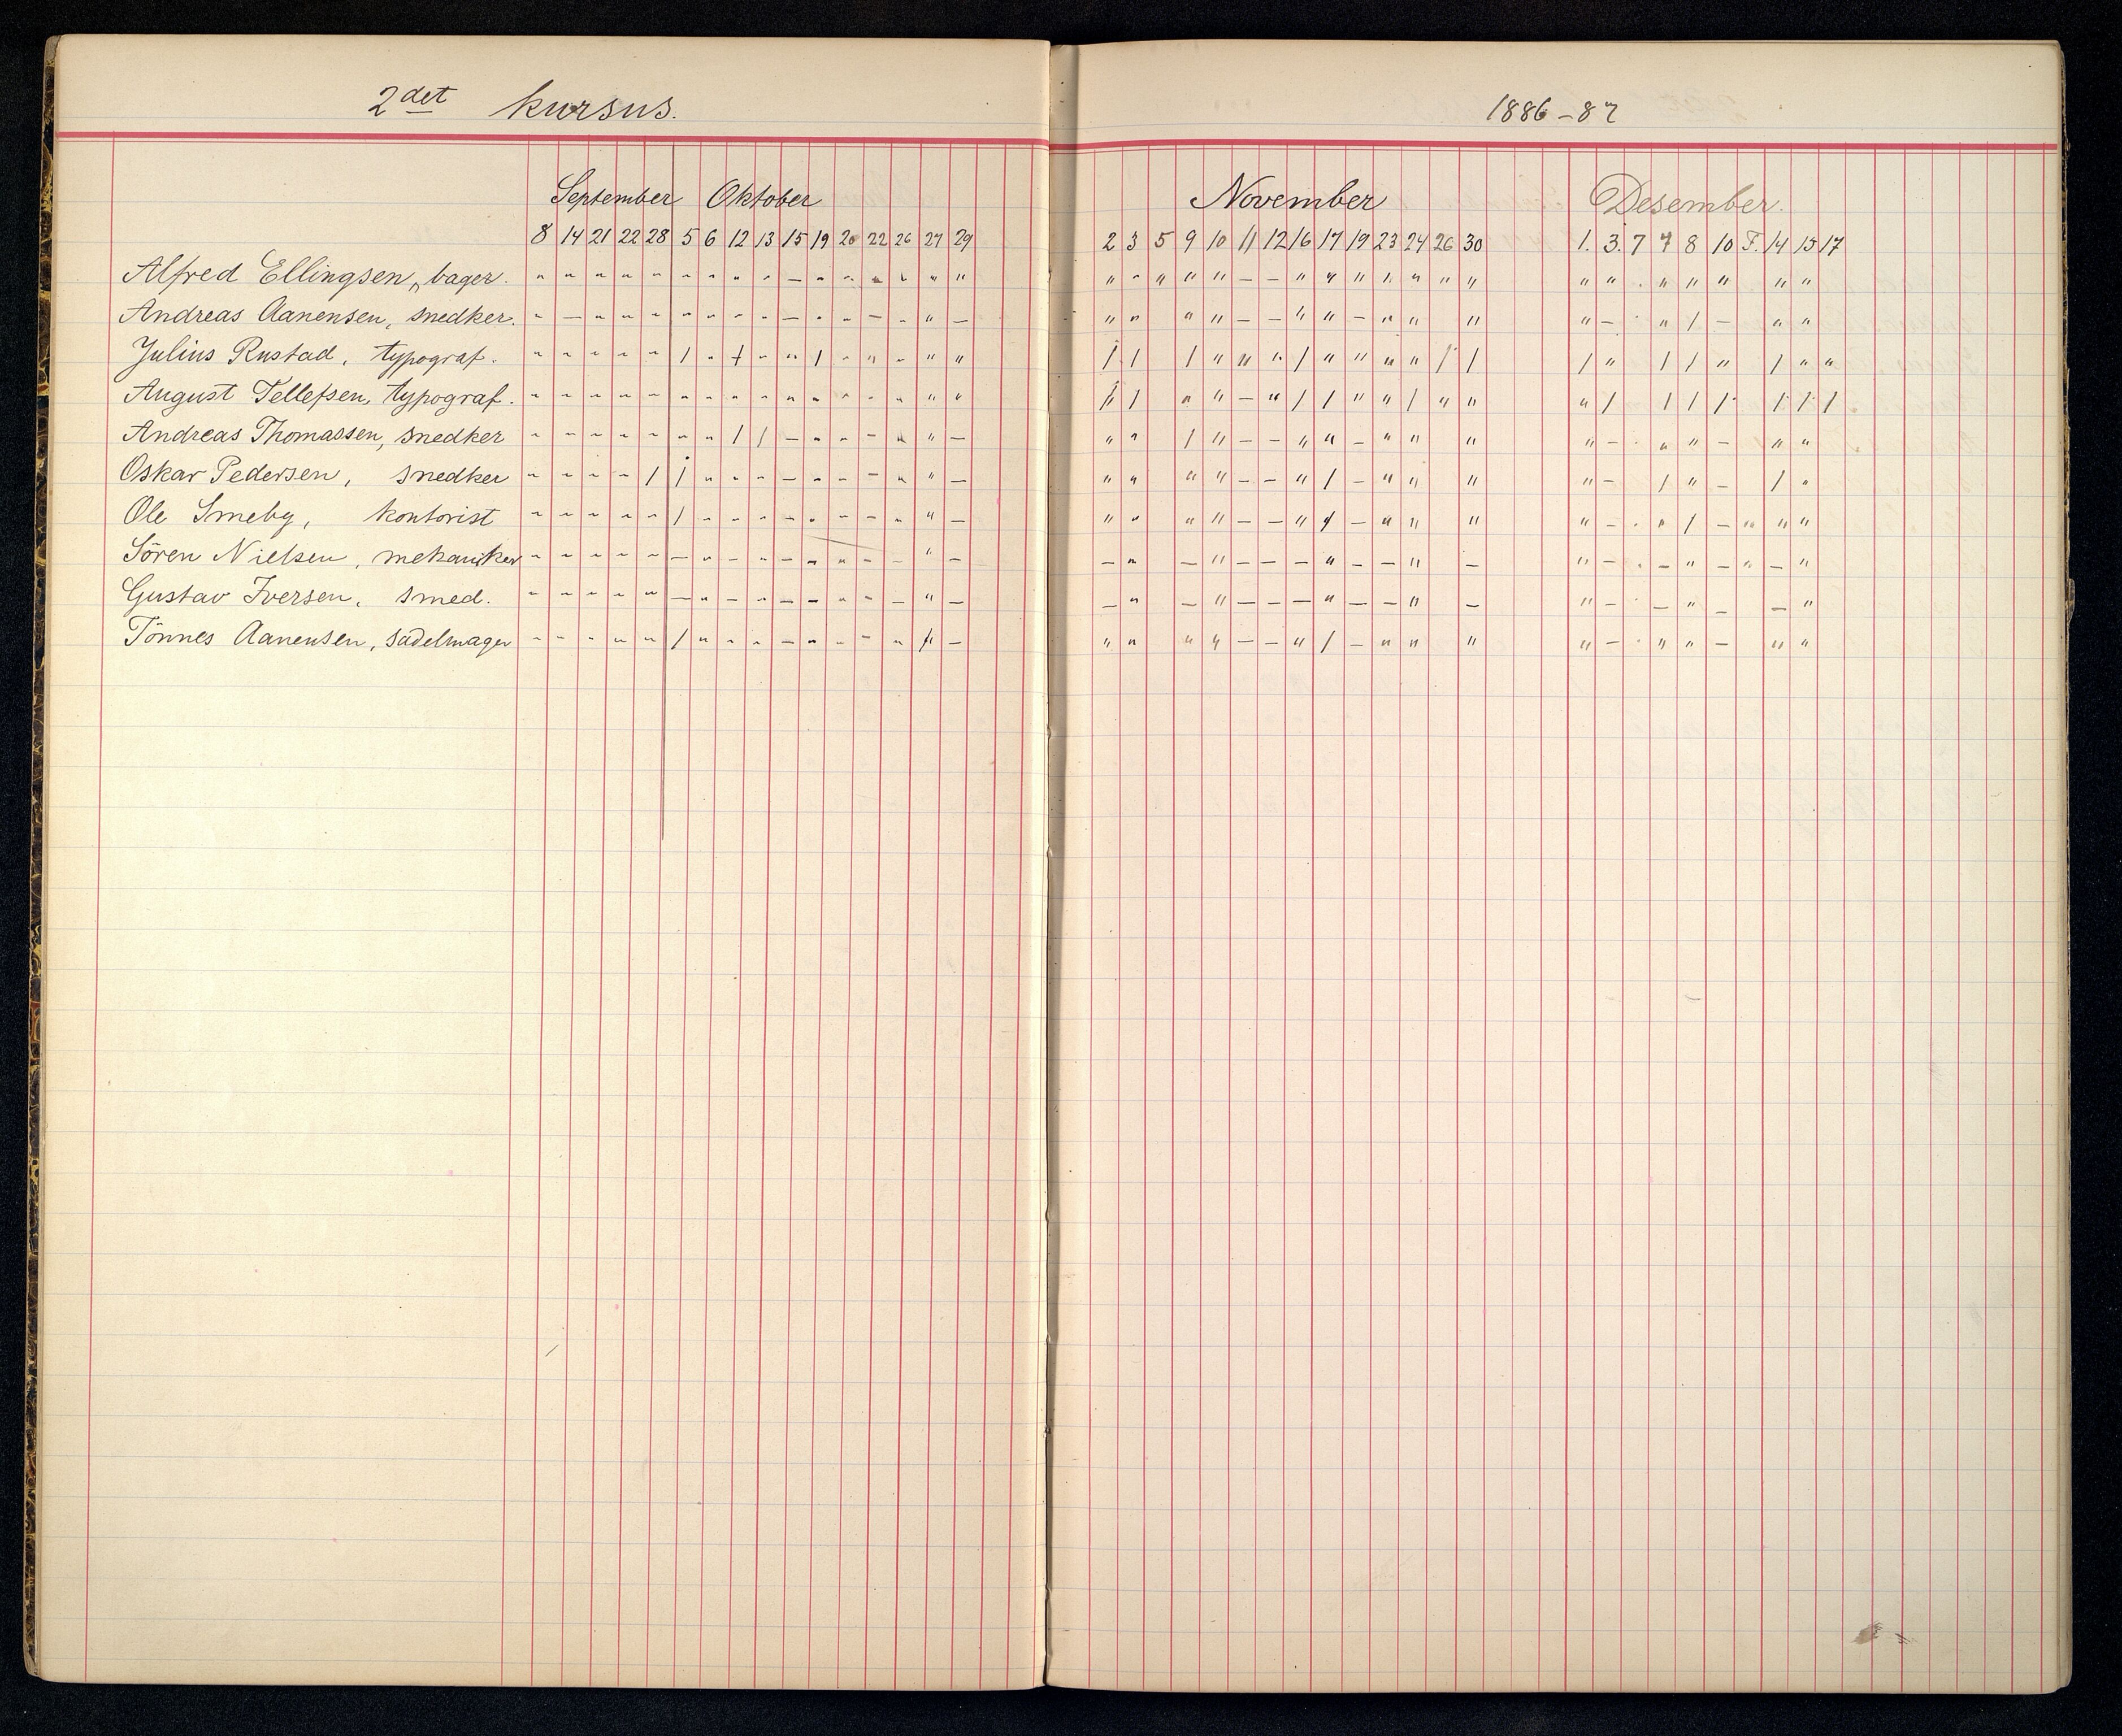 2det kursus.
1886-87
September Oktober November Desember.
8 14 21 22 28 5 6 12 13 15 19 20 22 26 27 29 2 3 5 9 10 11 12 16 17 19 23 24 26 30 1. 3. 7 7 8 10 F. 14 15 17
Alfred Ellingsen, bager.
Andreas Aanensen, snedker.
Julius Rustad, typograf.
August Tellefsen, typograf.
Andreas Thomassen, snedker
Oskar Pedersen, snedker
Ole Smeby, kontorist
Sören Nielsen, mekaniker
Gustav Iversen, smed.
Tönnes Aanensen, sadelmager